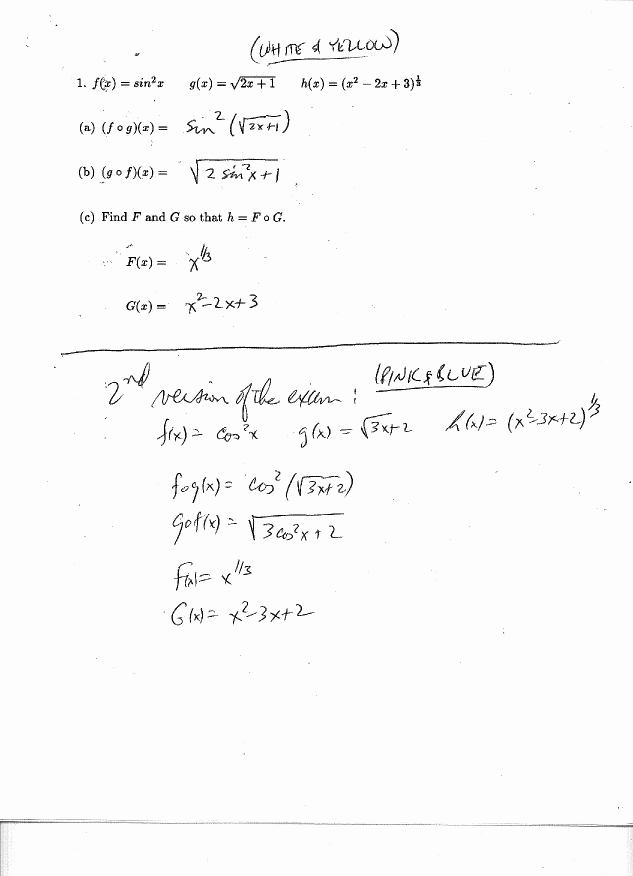 (WHITE & YELLOW)
1. f(x) = sin²x g(x) = √(2x + 1) h(x) = (x² − 2x + 3)^⅓
(a) (f ∘ g)(x) = sin²(√(2x+1))
(b) (g ∘ f)(x) = √(2 sin²x + 1)
(c) Find F and G so that h = F ∘ G.
F(x) = x^1/3
G(x) = x²−2x+3
2nd version of the exam : (PINK & BLUE)
f(x) = cos²x g(x) = √(3x+2) h(x) = (x²−3x+2)^1/3
f∘g(x) = cos²(√(3x+2))
g∘f(x) = √(3cos²x + 2)
F(x) = x^1/3
G(x) = x²−3x+2